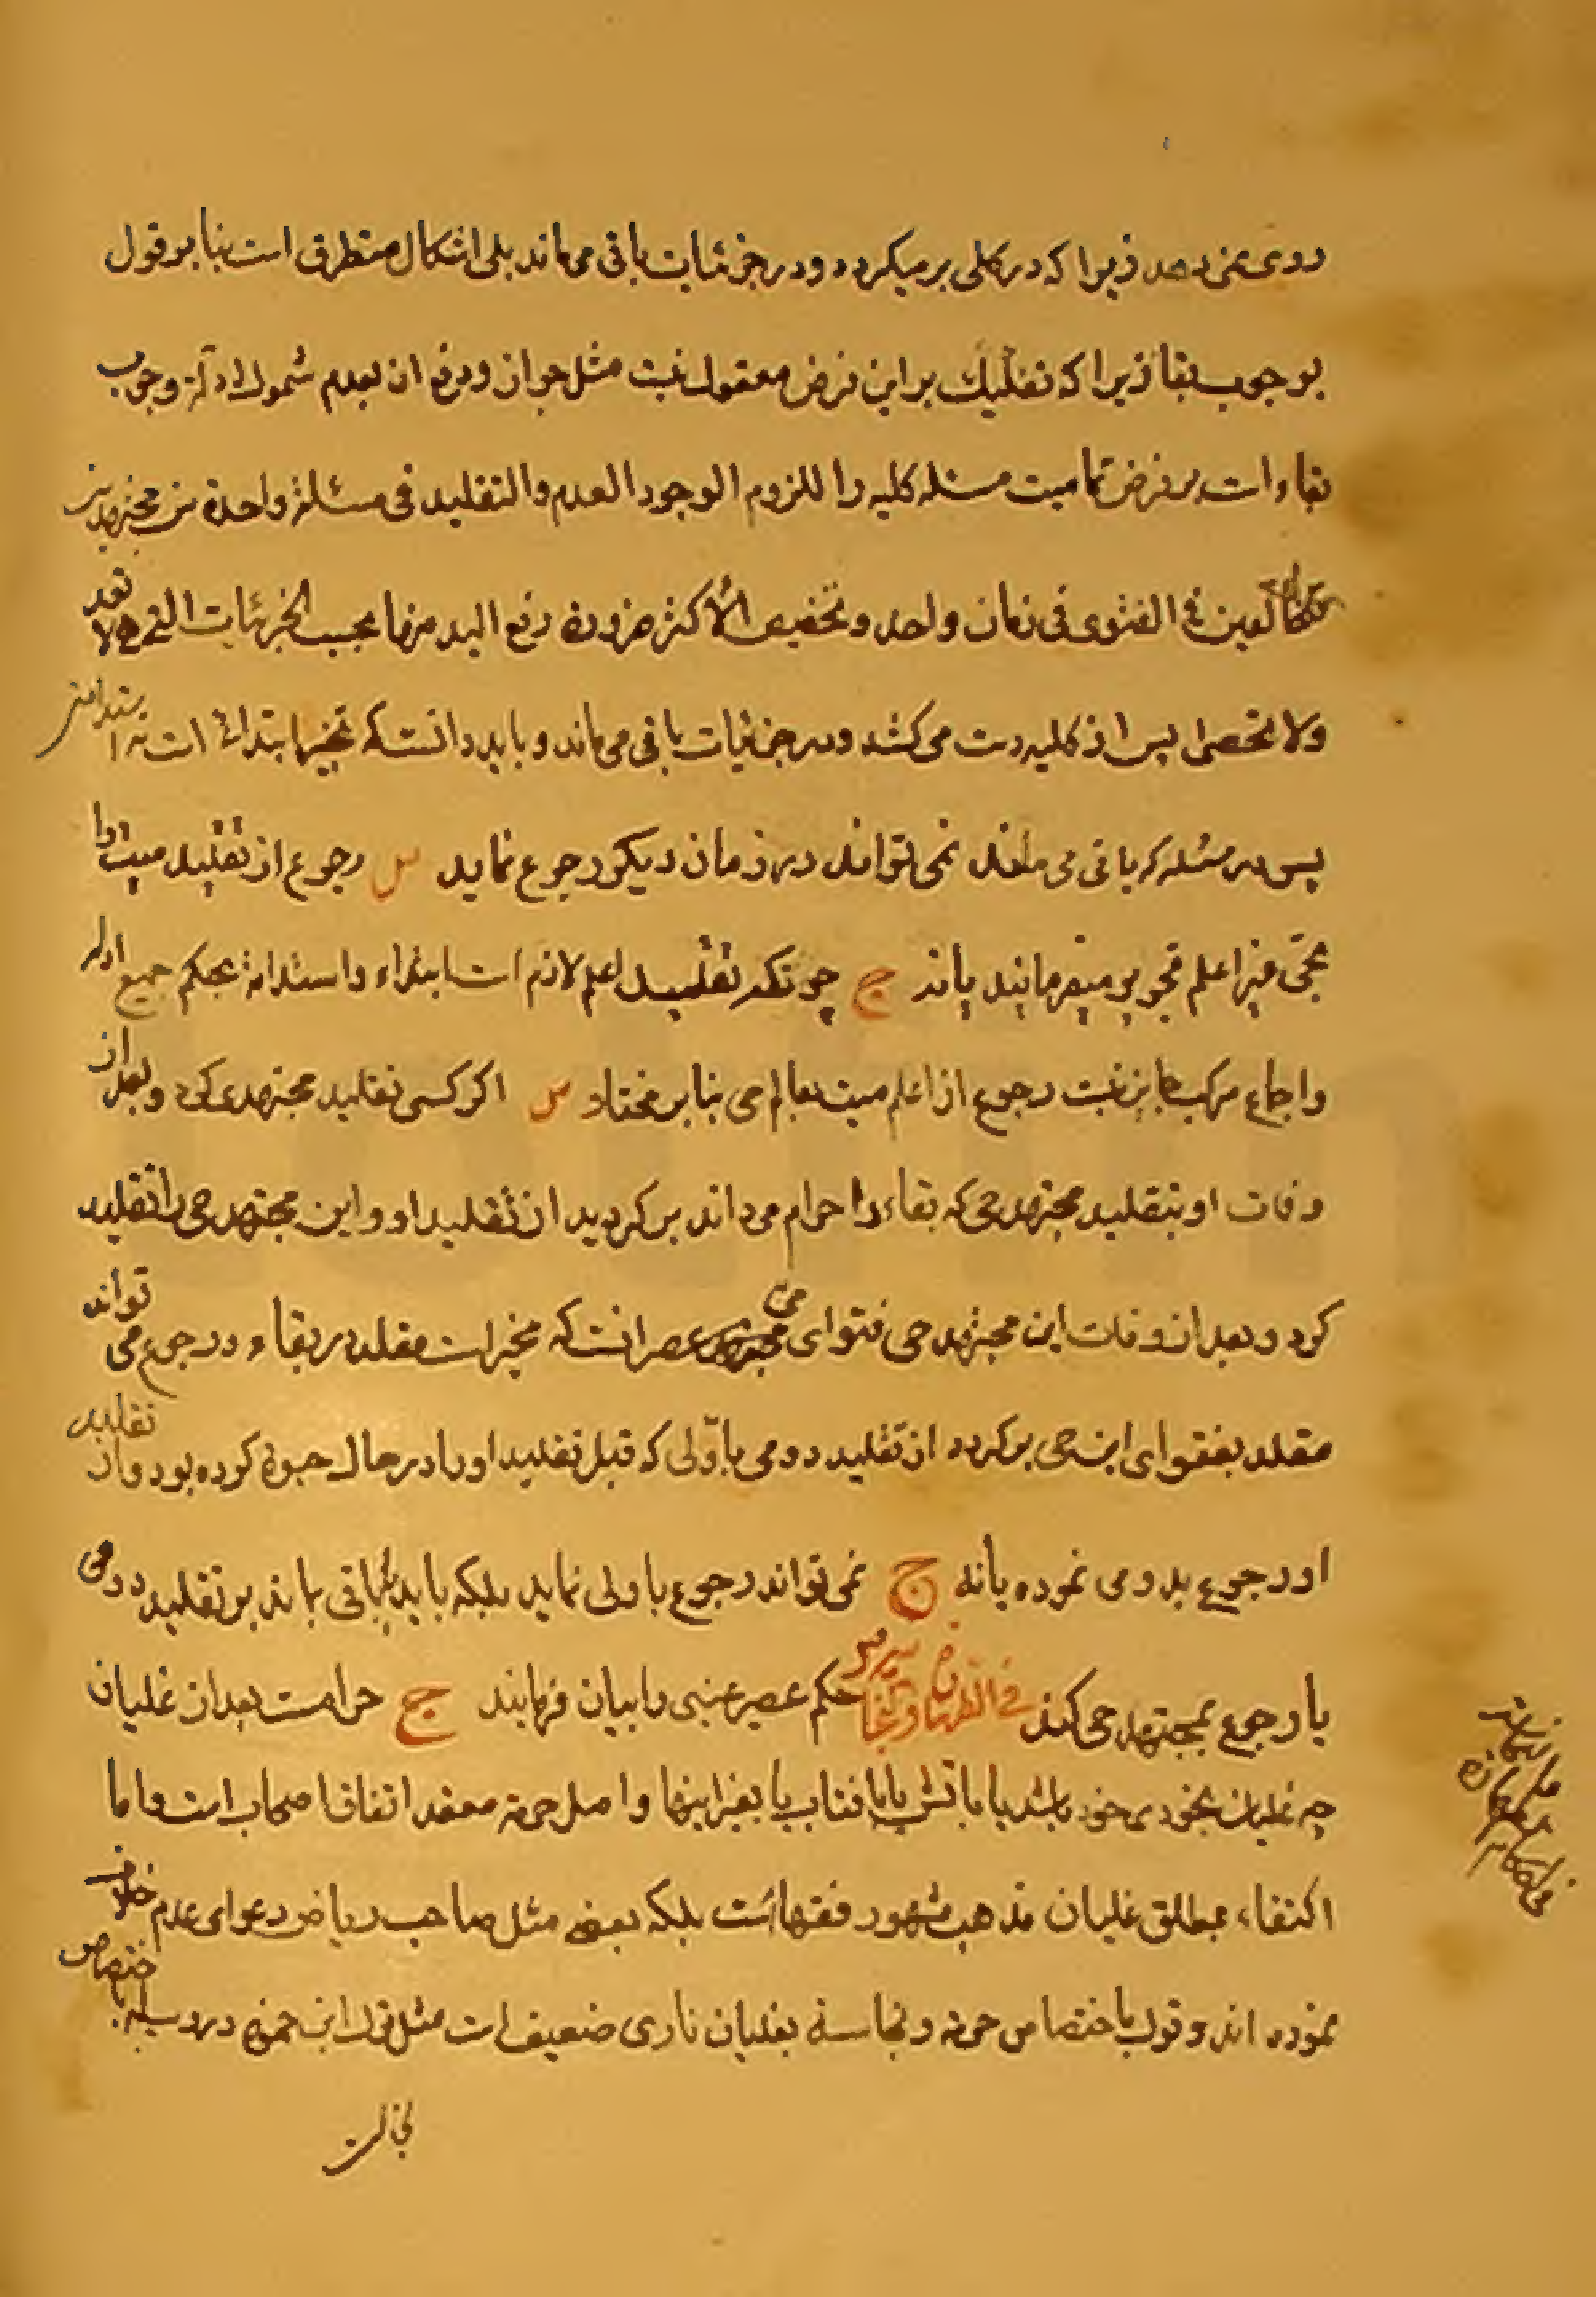 روی نمی دهد زیرا که در کلی بر میکردد و در جزئیات باقی می ماند بلی اشکال متطرق است بنا بر قول
بوجوب بقا زیرا که تفکیک بر این فرض معقول نیست مثل جواز و دفع ان بعدم شمول ادلّة وجوب
بقاء است بر فرض تمامیت مسئله کلیه را للزوم الوجود العدم والتقلید فی مسئلة واحدة من مجتهدین
متخالفین فی الفتوی فی زمان واحد و تخصیص الأکثر ضرورة رفع الید منها بحسب الجزئیات التی لا تعد
ولا تحصی پس از کلیه دست می کشد و در جزئیات باقی می ماند و باید دانست که تخییر ابتدائی است نه استمراری
پس در مسئله که باقی می ماند نمی تواند در زمان دیکر رجوع نماید س رجوع از تقلید میت را
بحّی غیر اعلم تجویز میفرمایند یا نه ج چونکه تقلید اعلم لازم است ابتداء و استدامة بحکم جمیع ادله
و اجماع مرکب جایز نیست رجوع از اعلم میت بعالم حی بنا بر مختار س اکر کسی تقلید مجتهدی کرد و بعد از
وفات او بتقلید مجتهد حی که بقاء را حرام می داند بر کردید از تقلید او و این مجتهد حی را تقلید
کرد و بعد از وفات این مجتهد حی فتوای حی عصر انست که مخیر است مقلد در بقاء و رجوع می تواند
مقلد بفتوای این حی بر کردد از تقلید دومی باوّلی که قبل تقلید او را در حال حیوة کرده بود و از تقلید
او رجوع بدومی نموده یا نه ج نمی تواند رجوع باولی نماید بلکه باید باقی بماند بر تقلید دومی
یا رجوع بمجتهد حی کند فی الطهارة والنجاسة س حکم عصیر عنبی را بیان فرمایند ج حرامست بعد از غلیان
چه غلیان بخودی خود باشد یا باتش یا بافتاب یا بغیر اینها و اصل حرمة معقد اتفاق اصحاب است و اما
اکتفاء بمطلق غلیان مذهب مشهور فقها است بلکه بعضی مثل صاحب ریاض دعوای عدم خلاف
نموده اند و قول باختصاص حرمة و نجاسة بغلیان ناری ضعیف است مثل قول ابن حمزه در وسیله باختصاص